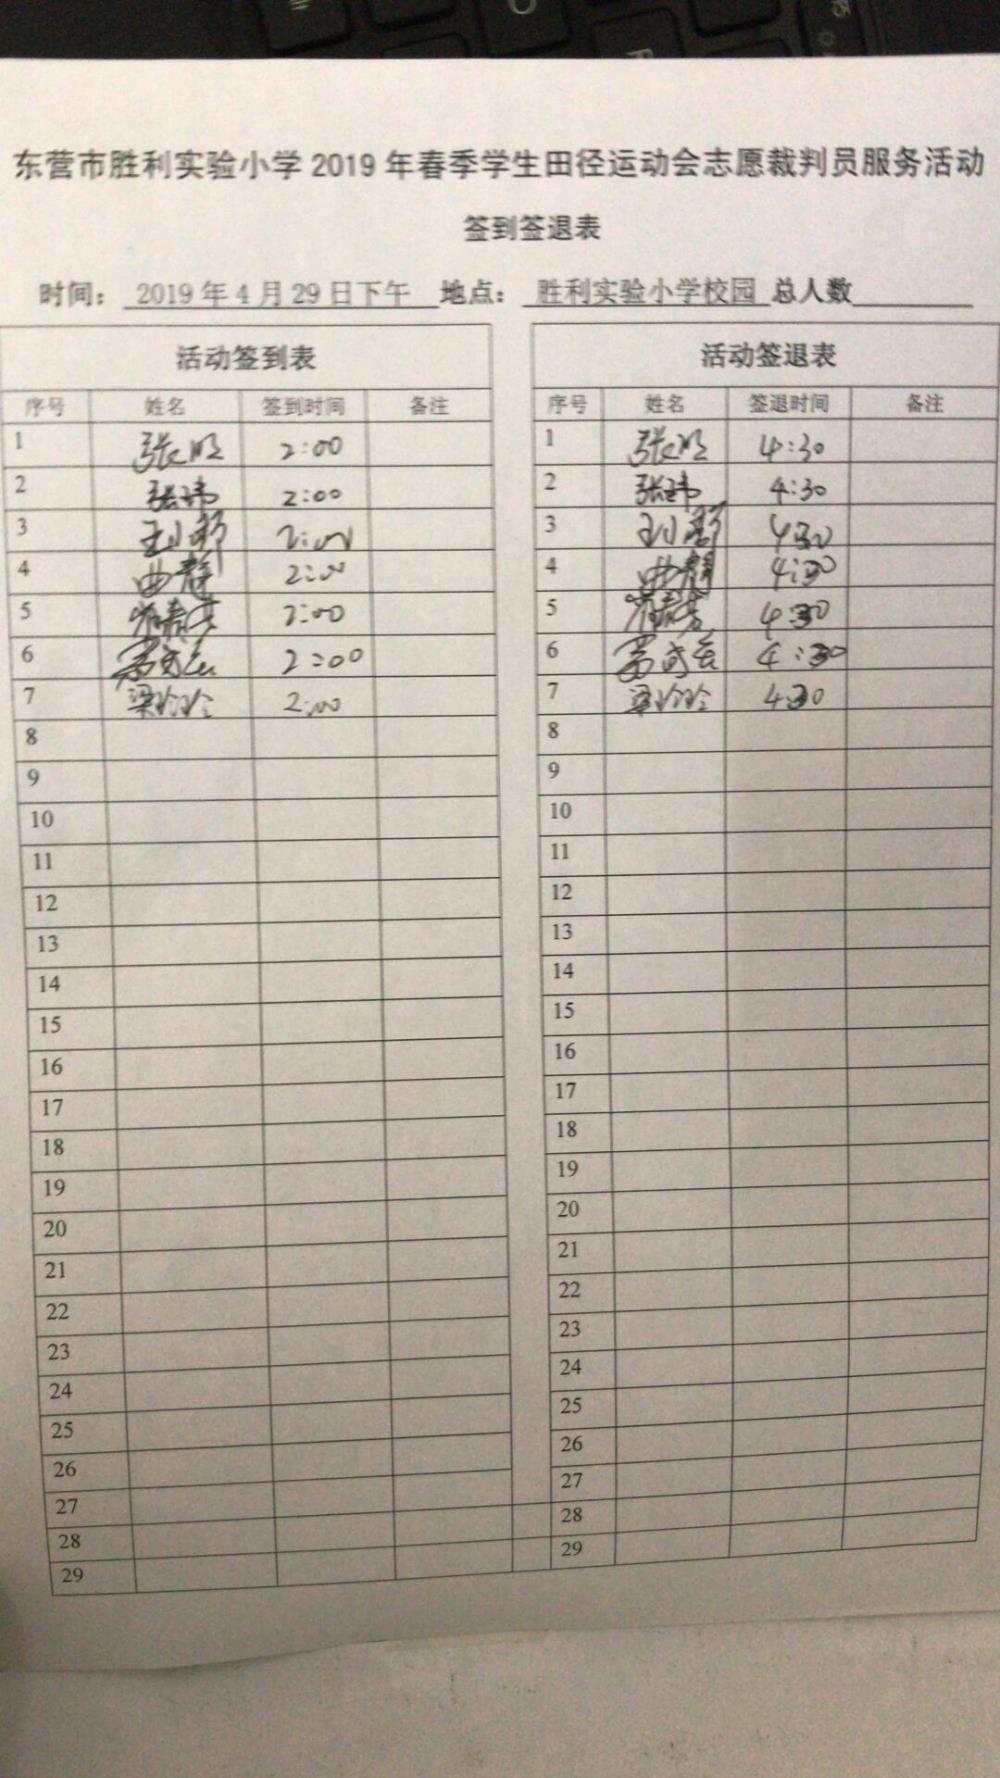 东营市胜利实验小学 2019 年春季学生田径运动会志愿裁判员服务活动
签到签退表
时间： 2019 年 4 月 29 日下午 地点： 胜利实验小学校园 总人数
活动签到表 活动签退表
序号 姓名 签到时间 备注 序号 姓名 签退时间 备注
1 2:00 1 4:30
2 张玮 2:00 2 张玮 4:30
3 2:00 3 4 30
4 曲静 2:00 4 曲静 4:30
5 2:00 5 4:30
6 2:00 6 4:30
7 梁玲玲 2:00 7 梁玲玲 4:30
8 8
9 9
10 10
11 11
12 12
13 13
14 14
15 15
16 16
17 17
18 18
19 19
20 20
21 21
22 22
23 23
24 24
25 25
26 26
27 27
28 28
29 29